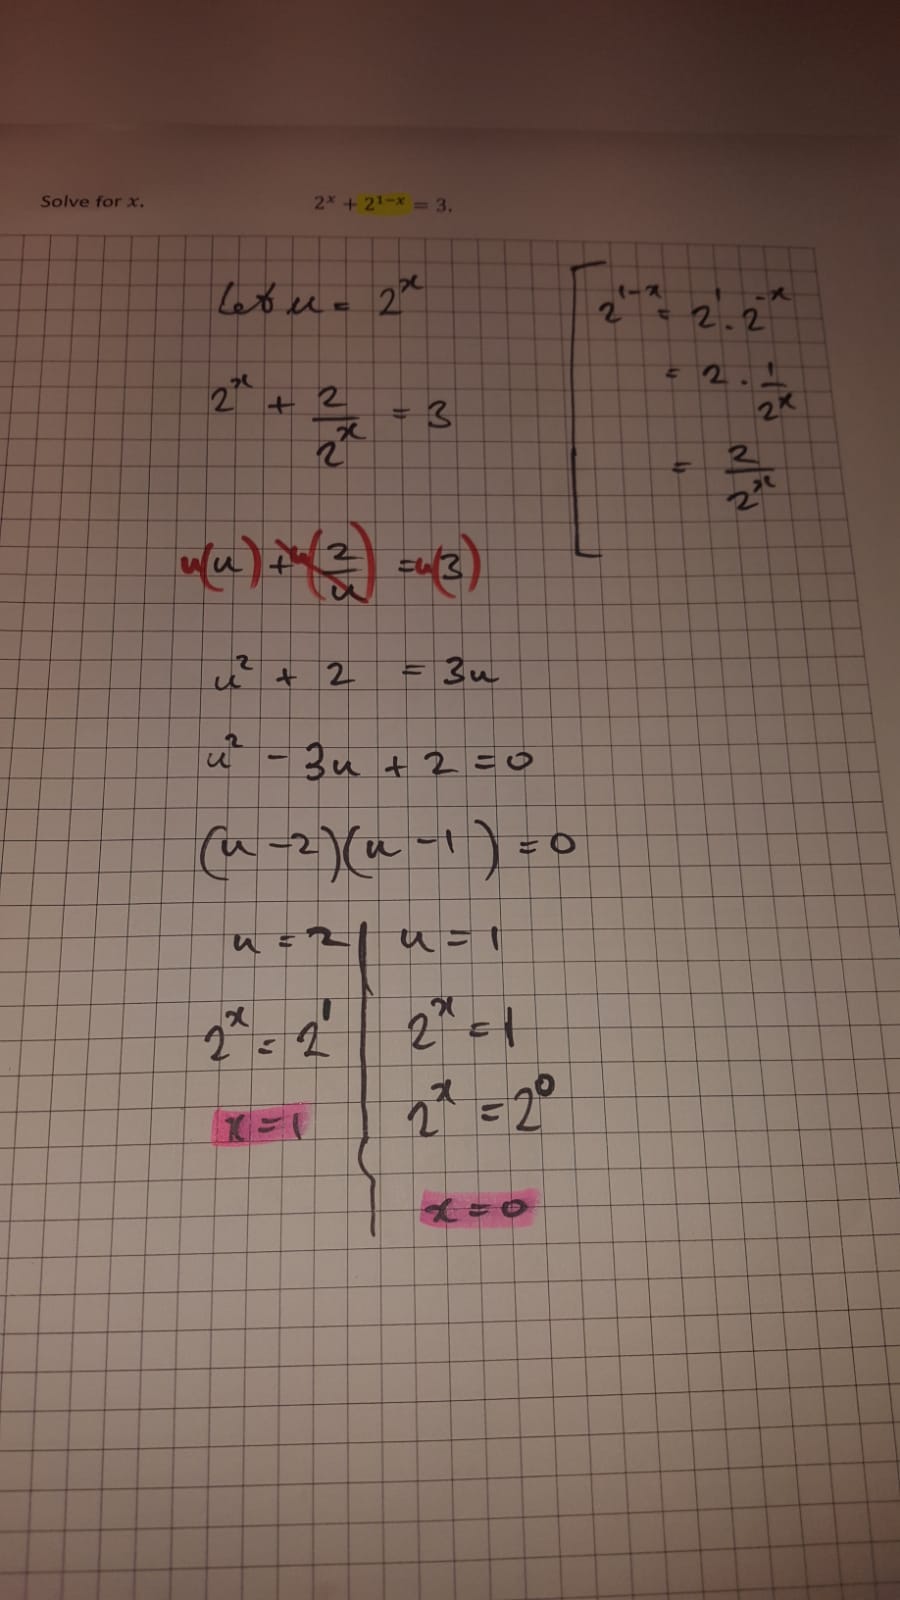 Solve for x. 2ˣ + 2¹⁻ˣ = 3.
Let u = 2ˣ
2¹⁻ˣ = 2¹ . 2⁻ˣ
= 2 . 1/2ˣ
= 2/2ˣ
2ˣ + 2/2ˣ = 3
u(u) + u(2/u) = u(3)
u² + 2 = 3u
u² - 3u + 2 = 0
(u - 2)(u - 1) = 0
u = 2 | u = 1
2ˣ = 2¹ | 2ˣ = 1
x = 1 | 2ˣ = 2⁰
x = 0